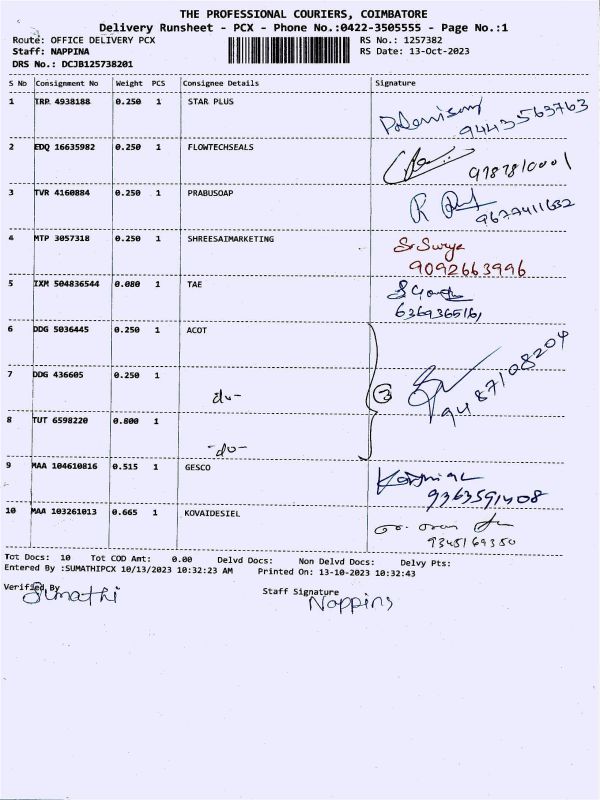 THE PROFESSIONAL COURIERS, COIMBATORE
Delivery Runsheet - PCX - Phone No.:0422-3505555 - Page No.:1
Route: OFFICE DELIVERY PCX RS No.: 1257382
Staff: NAPPINA RS Date: 13-Oct-2023
DRS No.: DCJB125738201
S No Consignment No Weight PCS Consignee Details Signature
1 TRP 4938188 0.250 1 STAR PLUS
9443563763
2 EDQ 16635982 0.250 1 FLOWTECHSEALS
9787810001
3 TVR 4160884 0.250 1 PRABUSOAP
9677411632
4 MTP 3057318 0.250 1 SHREESAIMARKETING Surya
9092663996
5 IXM 504836544 0.080 1 TAE
6369365161
6 DDG 5036445 0.250 1 ACOT
7 DDG 436605 0.250 1 -do- 3 9487108204
8 TUT 6598220 0.800 1 -do-
9 MAA 104610816 0.515 1 GESCO
9363591408
10 MAA 103261013 0.665 1 KOVAIDESIEL
9345169350
Tot Docs: 10 Tot COD Amt: 0.00 Delvd Docs: Non Delvd Docs: Delvy Pts:
Entered By :SUMATHIPCX 10/13/2023 10:32:23 AM Printed On: 13-10-2023 10:32:43
Verified By Sumathi Staff Signature
Nappina